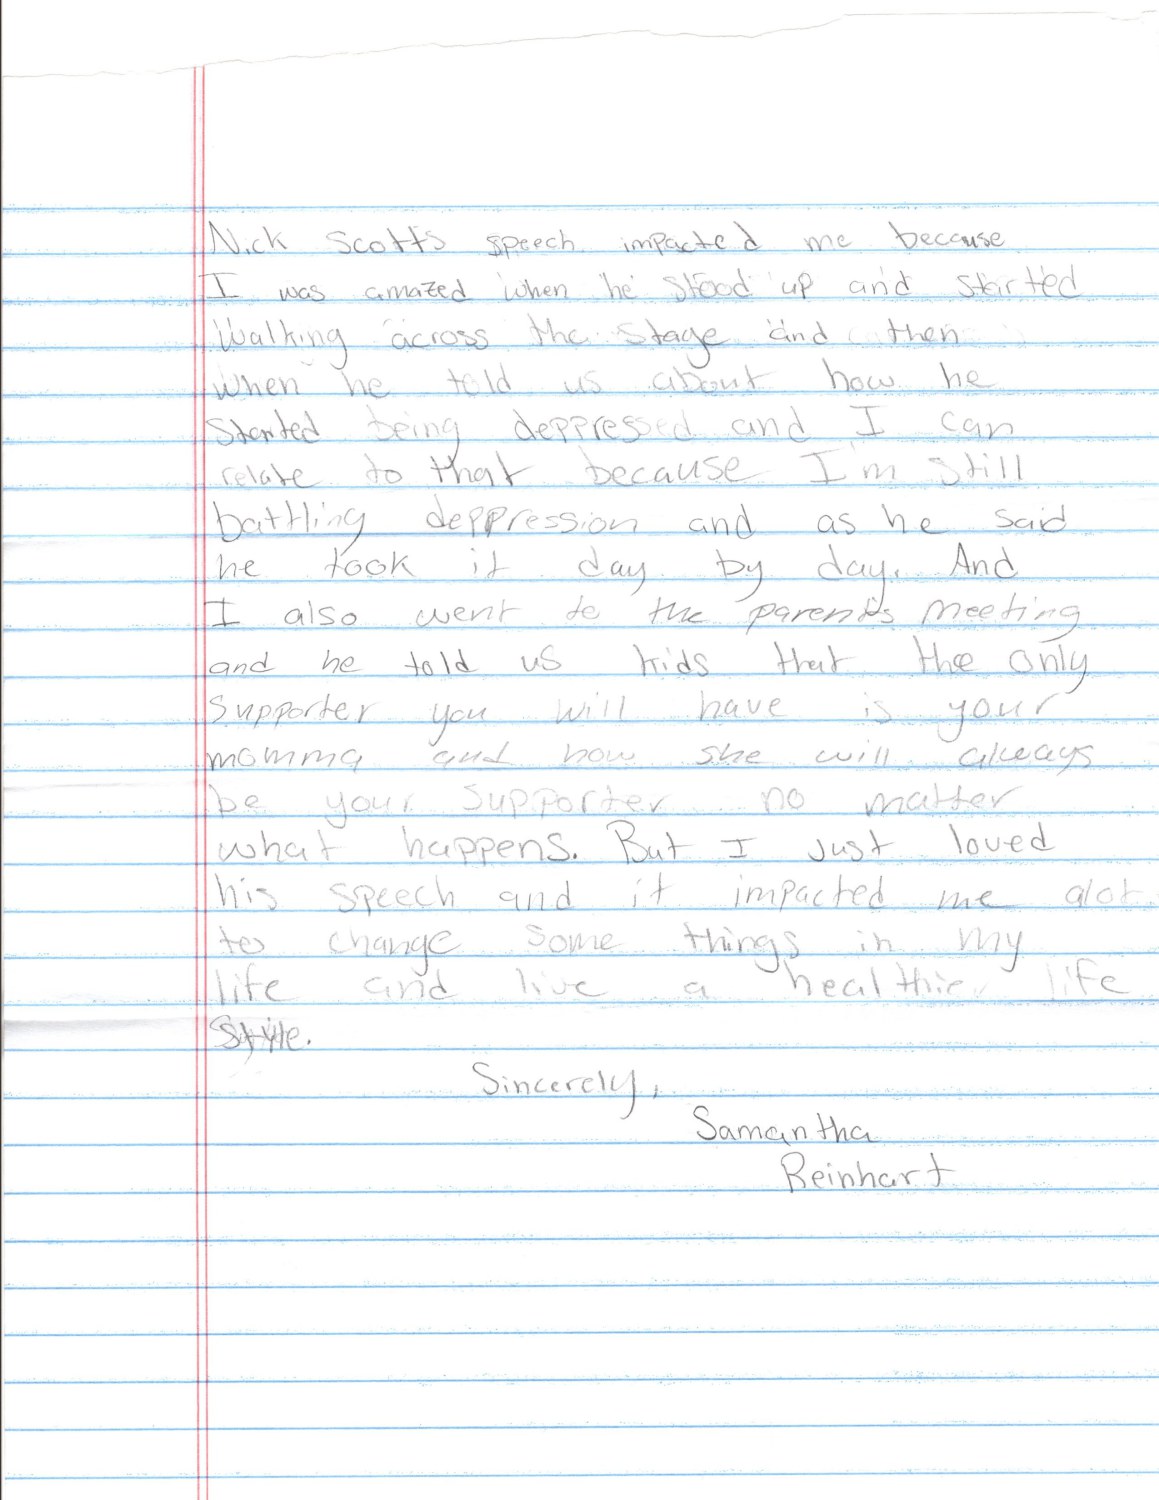 Nick Scotts speech impacted me because
I was amazed when he stood up and started
Walking across the stage and then
when he told us about how he
Started being deppressed and I can
relate to that because I'm still
battling deppression and as he said
he took it day by day. And
I also went to the parents meeting
and he told us kids that the only
Supporter you will have is your
momma and how she will always
be your supporter no matter
what happens. But I just loved
his speech and it impacted me alot
to change some things in my
life and live a healthier life
Style.
Sincerely,
Samantha
Reinhart